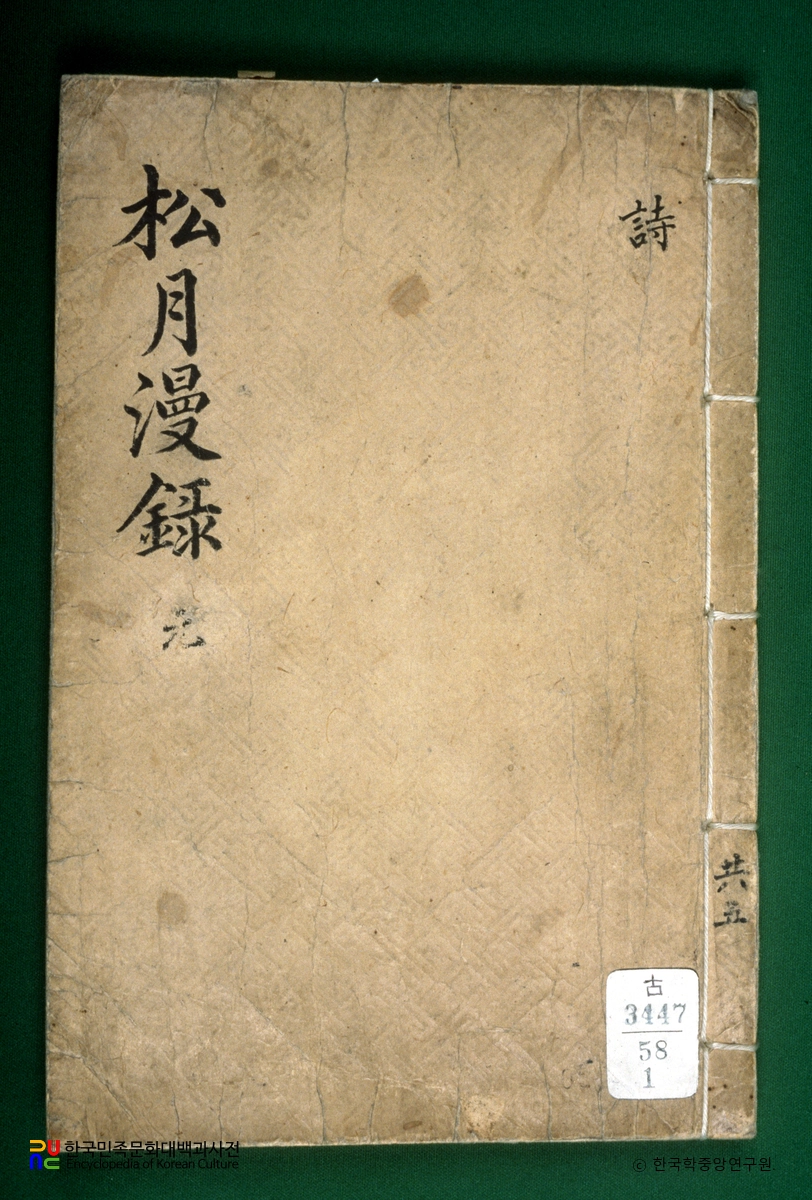 松月漫錄
元
詩
共五
古
3447
58
1
한국민족문화대백과사전
Encyclopedia of Korean Culture
© 한국학중앙연구원